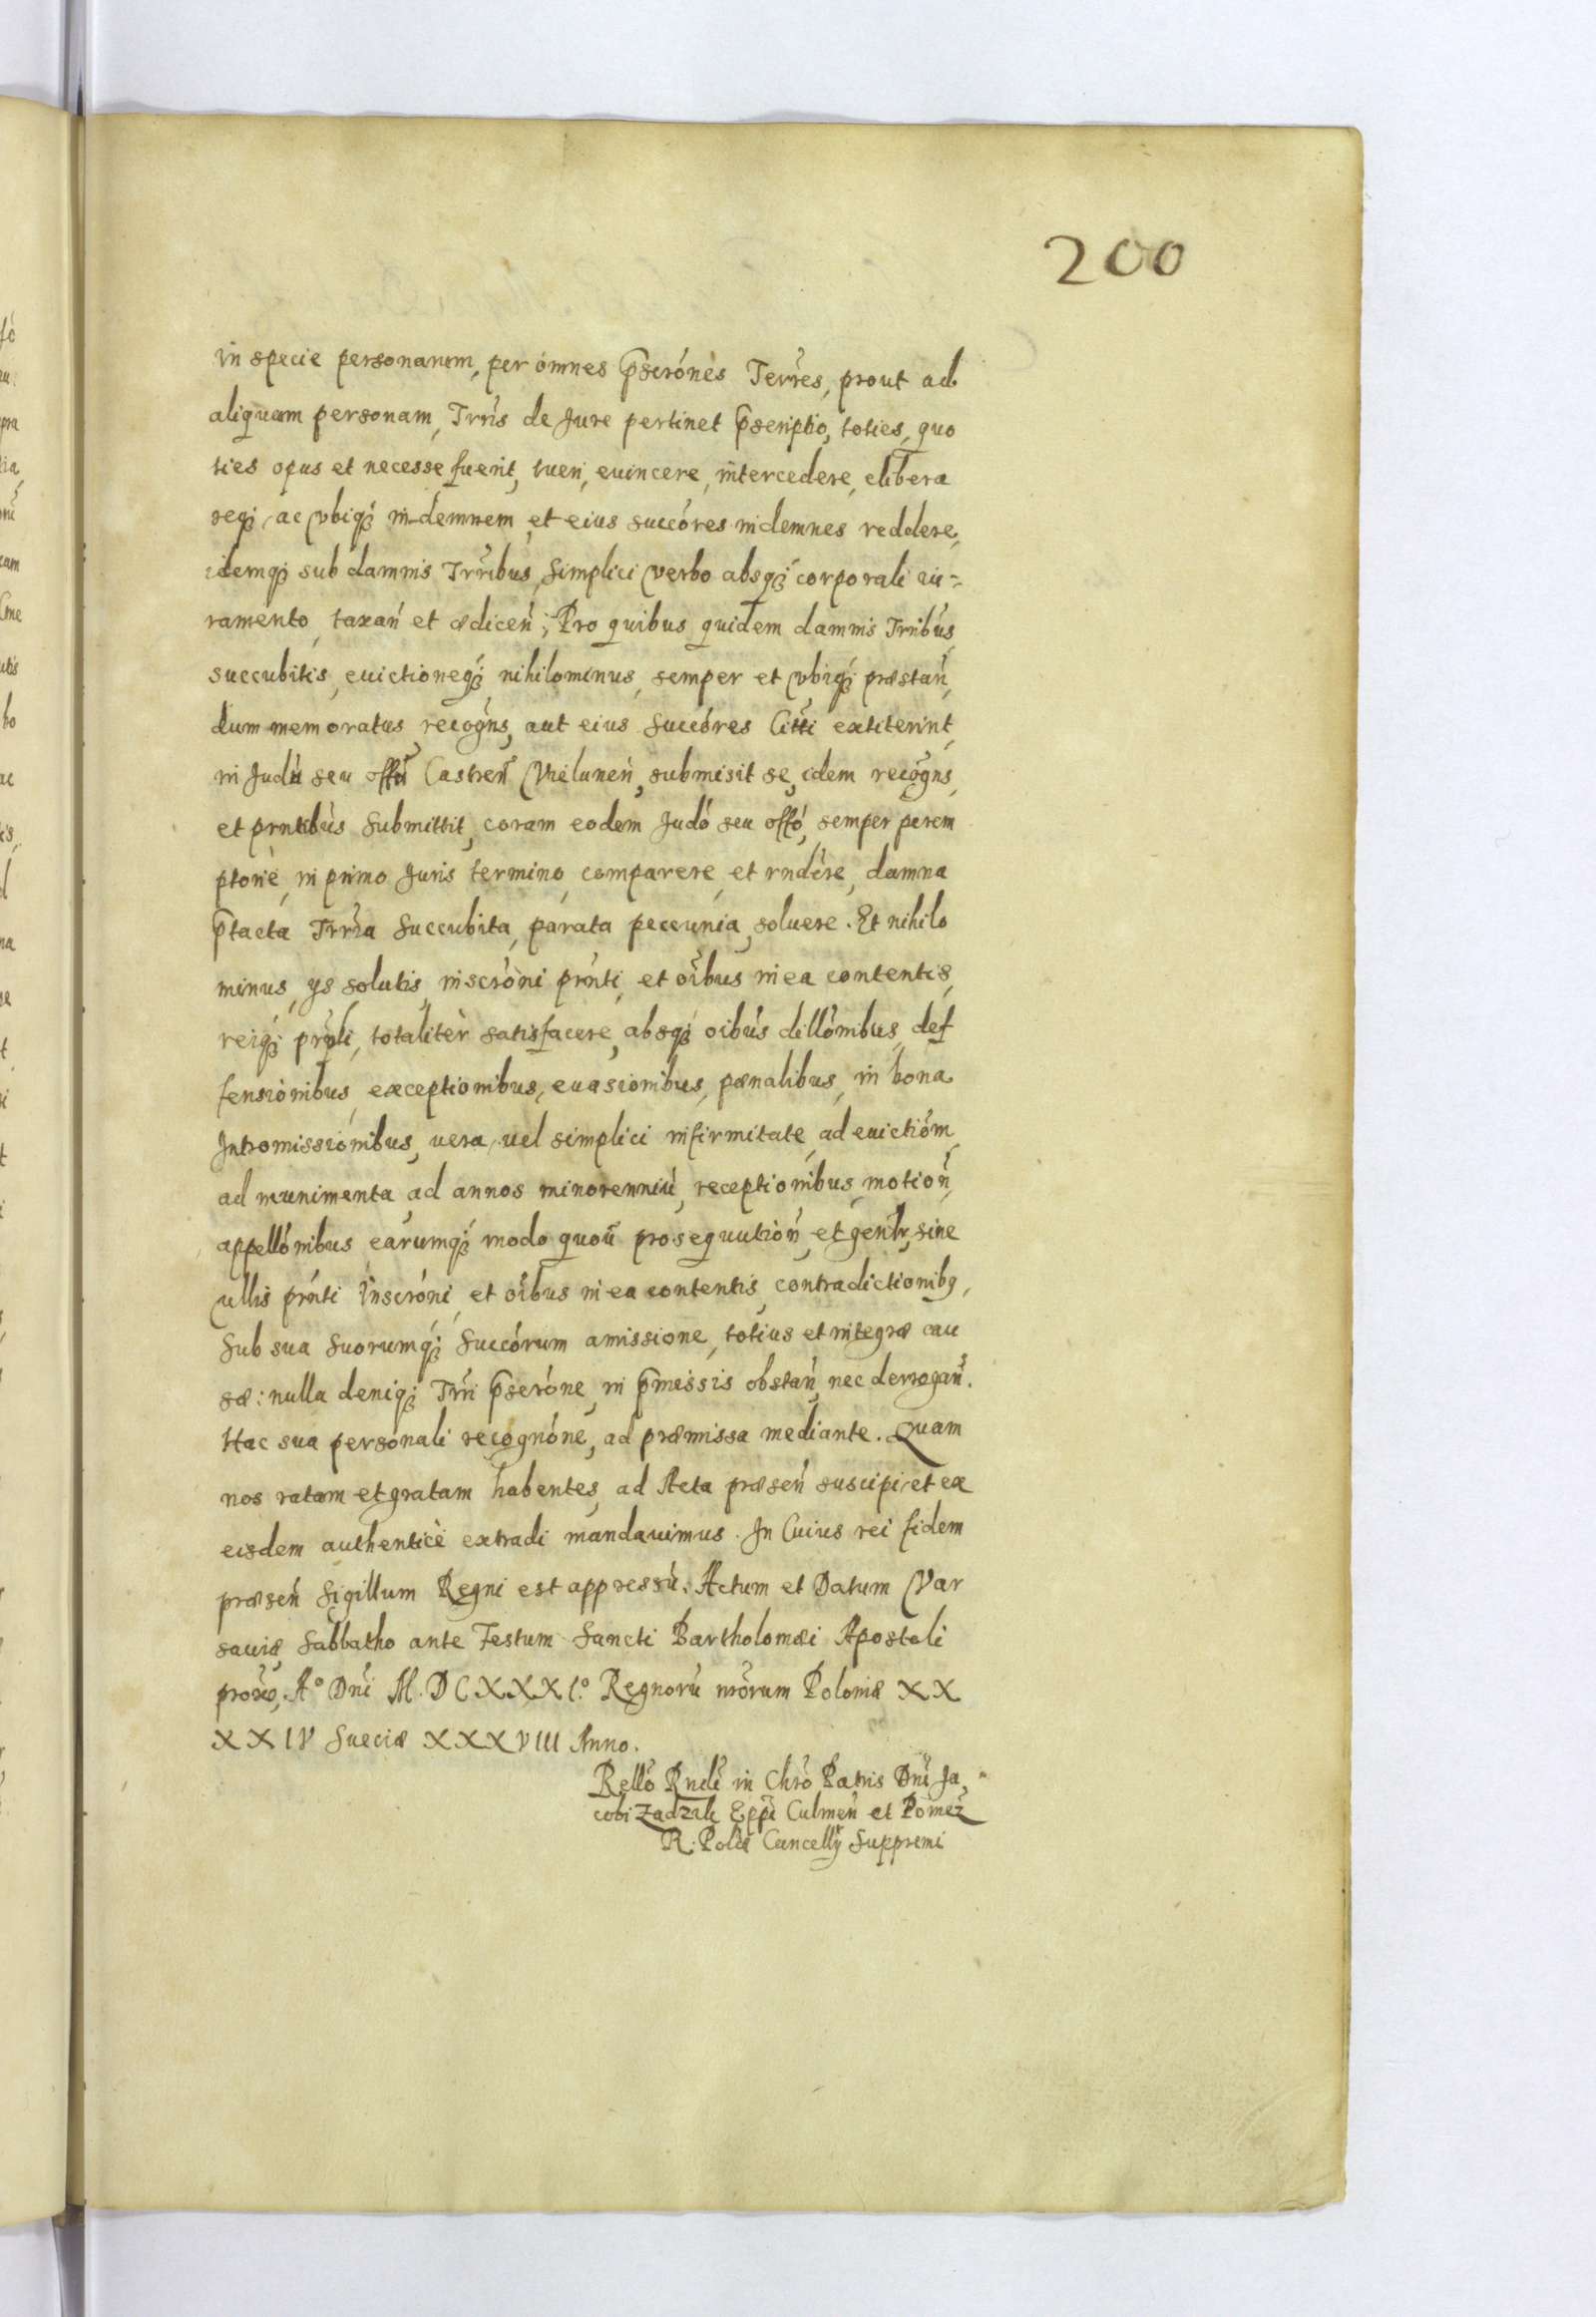 200
in specie personarum, per omnes p̄scrónes Terr̃es, prout ad
aliquam personam, Trr̃is de Jure pertinet p̄scriptio, toties, quo
ties opus et necesse fuerit, tueri, evincere, intercedere, elibera
reqꝫ, ac vbiqꝫ indemnem et eius succóres indemnes reddere,
idemqꝫ sub damnis Trr̃ibus, simplici verbo absqꝫ corporali iu=
ramento, taxań et ædiceń; Pro quibus quidem damnis Trr̃ibus
succubitis, euictioneqꝫ nihilominus, semper et vbiqꝫ præstań,
dum memoratus recog̃ns, aut eius succóres Citt̃i extiterint,
in Judũ seu off̃ũ Castreñ Vielunen̄, submisit se, idem recog̃ns,
et prñtibus submittit, coram eodem Judó seu offó, semper perem
ptoriè, in primo Juris termino, comparere, et rndére, damna
p̄tacta Trr̃ia succubita, parata peccunia, soluere. Et nihilo
minus, ys solutis, inscróni prńti, et oĩbus in ea contentis,
reiqꝫ prĩpli, totalitèr satisfacere, absqꝫ oibús dillónibus, def
fensionibus, exceptionibus, euasionibus, pœnalibus, in bona
Intromissionibus, vera, vel simplici infirmitate, ad euictióm,
ad munimenta, ad annos minorenniũ, receptionibus, motioñ,
appellónibus earumqꝫ modo quoũ prosequutioñ, et geñlr, sine
vllis prńti Inscróni, et oĩbus in ea contentis, contradictionibꝫ,
sub sua suorumqꝫ succórum amissione, totius et integræ cau
sæ: nulla deniqꝫ Trr̃i p̄scróne, in p̄messis obstań, nec derrogań.
Hac sua personali recognóne, ad præmissa mediante. Quam
nos ratam et gratam habentes, ad Acta præseń suscipi, et ex
eisdem authenticè extradi mandauimus. In Cuius rei fidem
præseń Sigillum Regni est appressũ. Actum et Datum Var
sauiæ, Sabbatho ante Festum Sancti Bartholomæi Apostoli
proxo, Aº Dni M. DCXXXIº. Regnorũ nr̃orum Poloniæ XX
XXIV Sueciæ XXXVIII Anno.
Relló Rndĩ in Chrõ Patris Dnĩ Ja,
cobi Zadzik Epp̃i Culmeń et Pomez̃
R: Poliæ Cancelly Suppremi